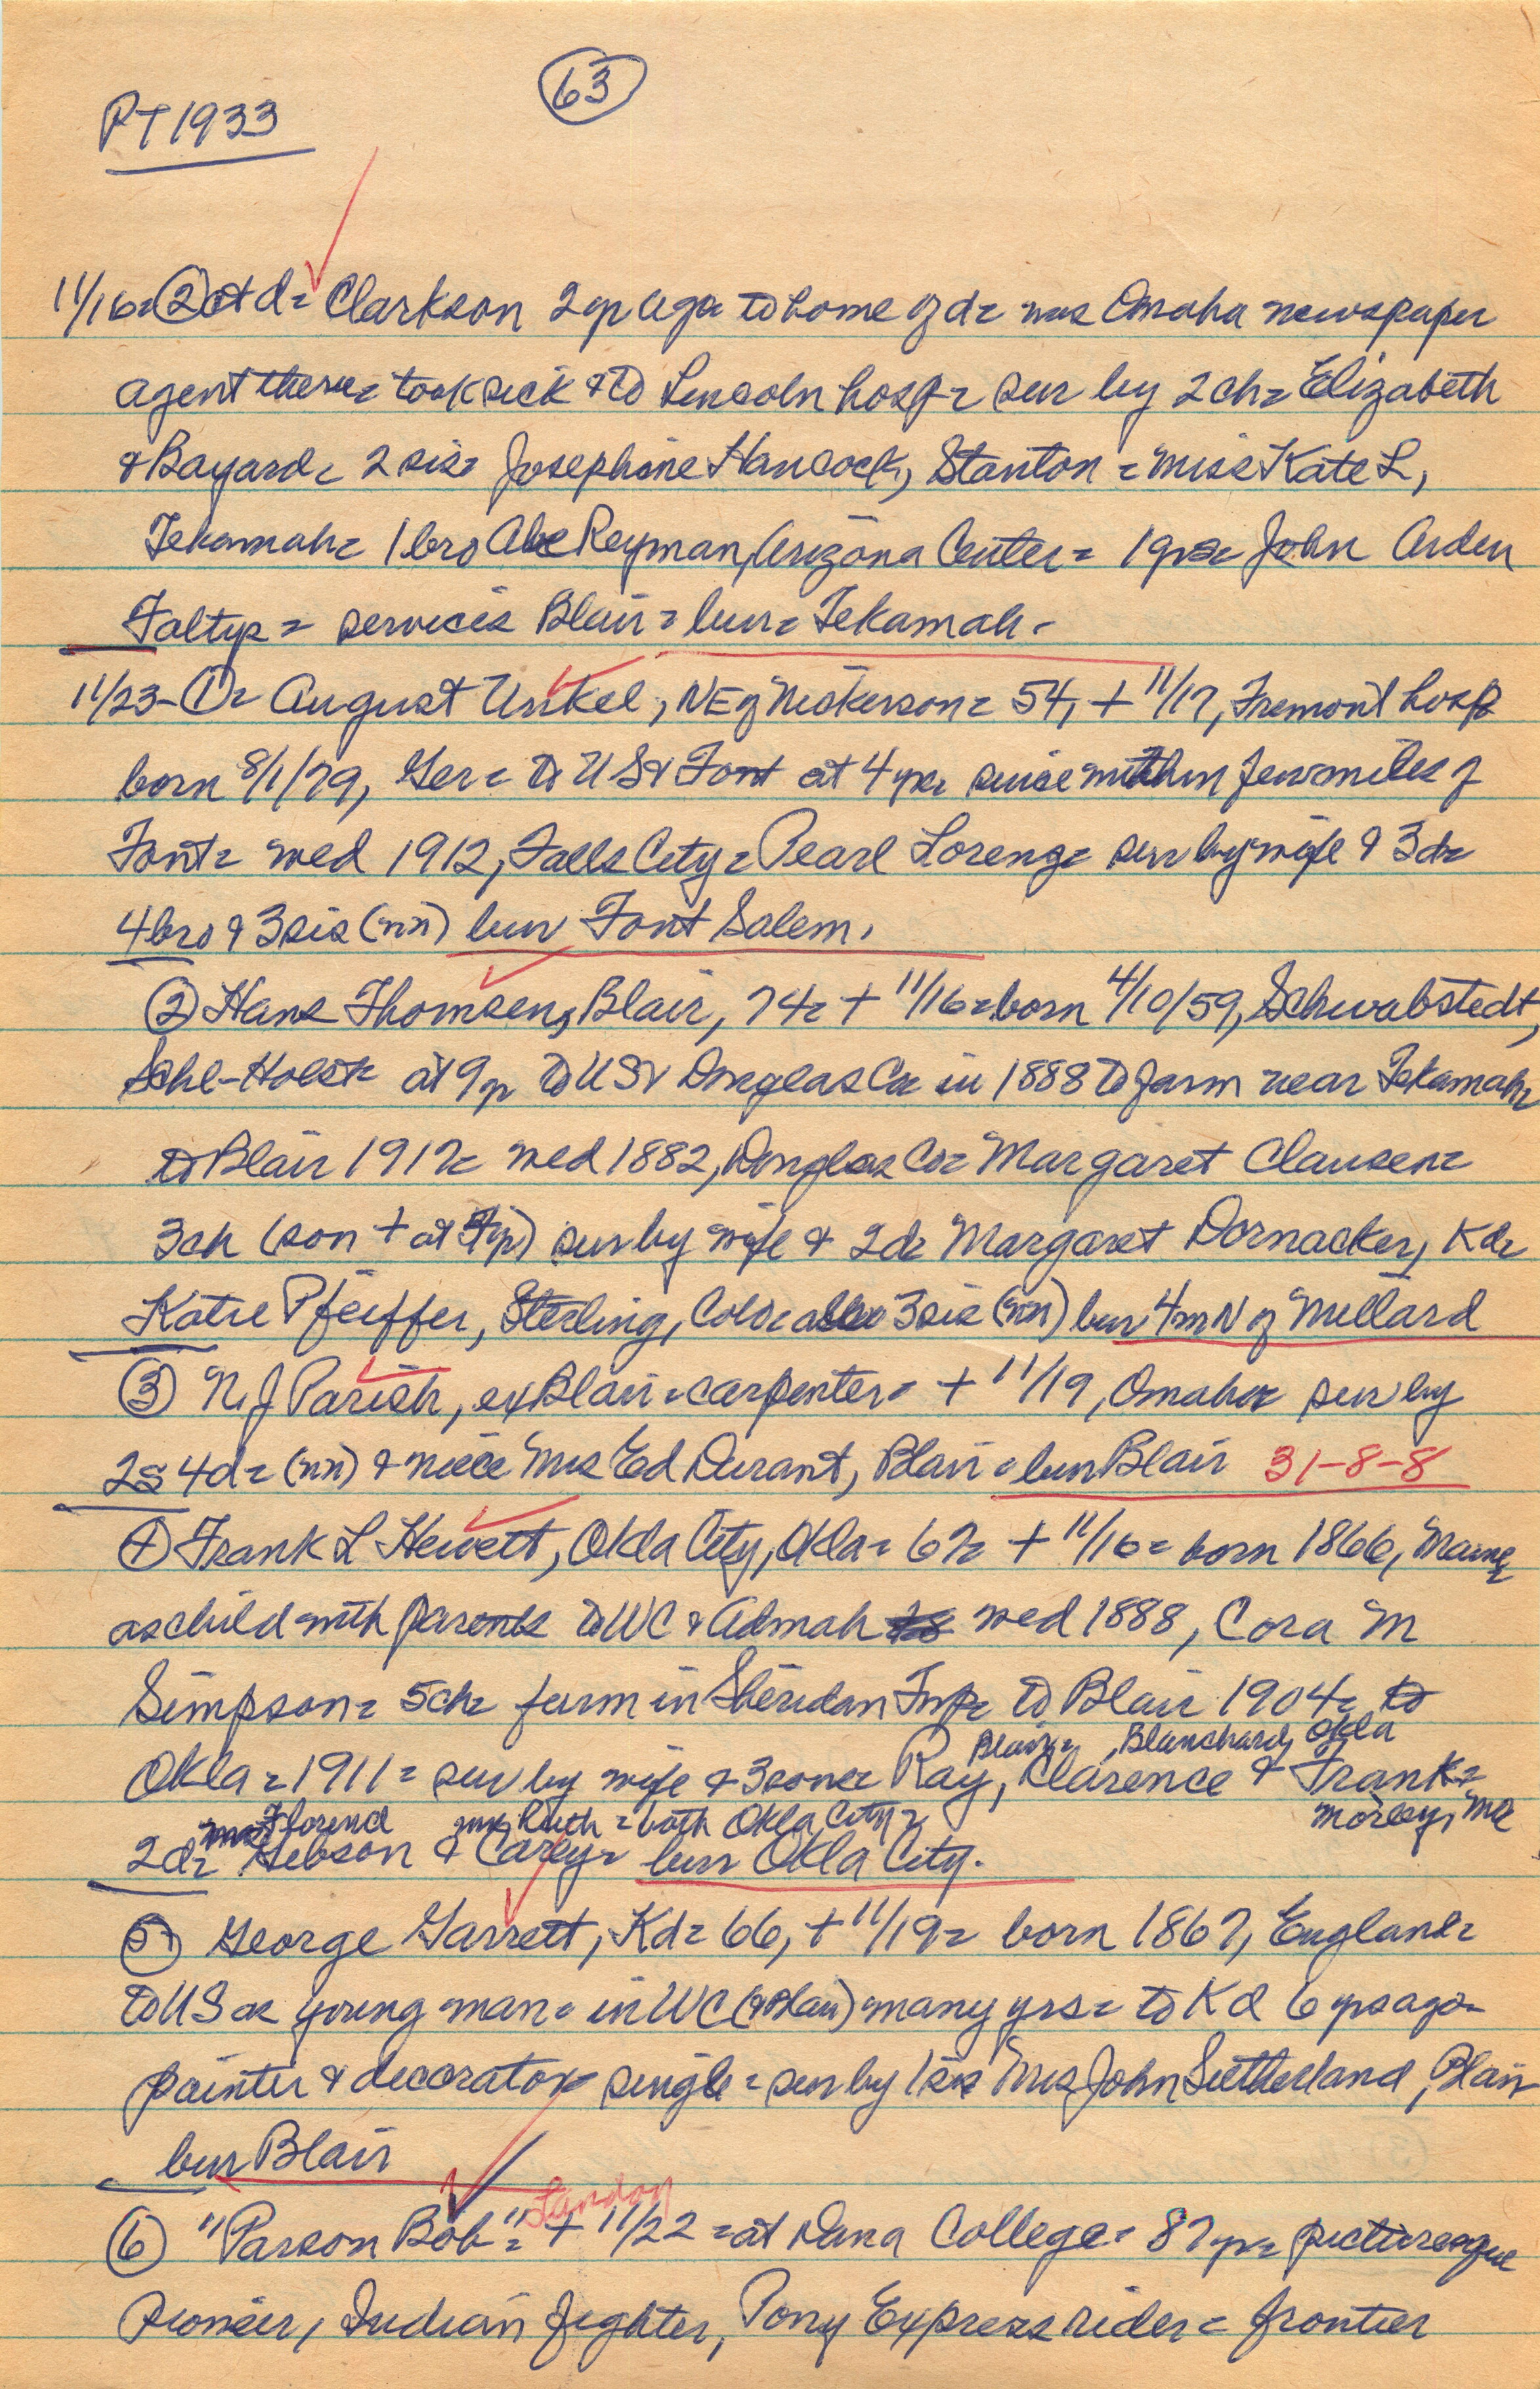 63
PT 1933
11/16= 2 ctd= Clarkson 2 yr ago to home of d= was Omaha newspaper
agent there= took sick & to Lincoln hosp= sur by 2 ch= Elizabeth
& Bayard= 2 sis= Josephine Hancock, Stanton = Miss Kate L,
Tekamah= 1 bro Abe Reyman, Arizona Center= 1 gs= John Arden
Faltys = services Blair = bur= Tekamah -
11/23- 1= August Unkel, NE of Nickerson= 54, + 11/17, Fremont hosp
born 8/1/79, Ger= to US & Font at 4 yr= since within few miles of
Font= wed 1912, Falls City= Pearl Loreng= sur by wife & 3d=
4 bro & 3 sis (nn) bur Font Salem.
2 Hans Thomsen, Blair, 74= + 11/16= born 4/10/59, Schwabstedt,
Schl-Holst= at 9 yr to US & Douglas Co= in 1888 to farm near Tekamah=
to Blair 1917= wed 1882, Douglas Co= Margaret Clausen=
3 ch (son + at yr) sur by wife & 2d= Margaret Dornacker, Kd=
Katie Pfeiffer, Sterling, Colo= also 3 sis (nn) bur 4m N of Millard
3 N. J Parish, ex Blair= carpenter= + 11/19, Omaha= sur by
2s 4d= (nn) & niece Mrs Ed Durant, Blair = bur Blair 31-8-8
4 Frank L Hewett, Okla City, Okla= 67= + 11/16= born 1866, Maine
as child with parents to WC & Admah wed 1888, Cora M
Simpson= 5 ch= farm in Sheridan Twp= to Blair 1904= to
Blair= , Blanchard, Okla
Okla = 1911 = sur by wife & 3 sons= Ray, Clarence & Frank=
Morley, Mo
Mrs Florend Mrs Ruth = both Okla City=
2d= Hebson & Carey= bur Okla City.
5 George Garrett, Kd= 66, + 11/19= born 1867, England=
to US as young man= in WC (& Blair) many yrs= to Kd 6 yrs ago=
painter & decorator single = sur by 1 sis Mrs John Sutherland, Blair
bur Blair
Landon
6 "Parson Bob" = + 11/22 = at Dana College= 87 yr= picturesque
pioneer, Indian fighter, Pony Express rider = frontier